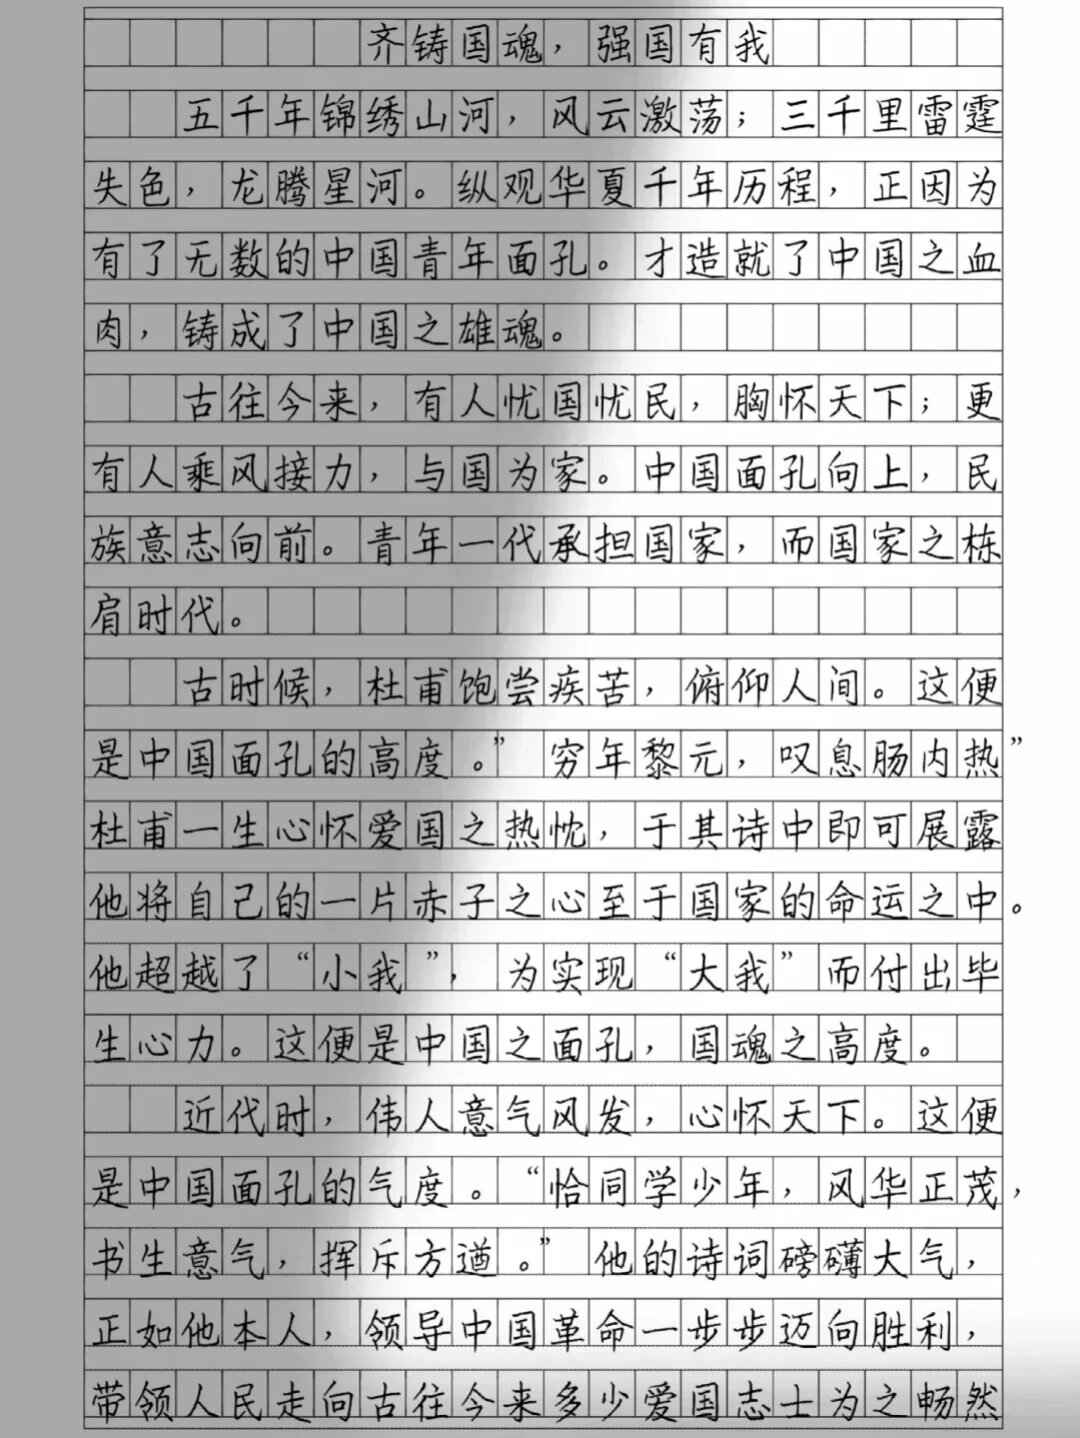 齐铸国魂，强国有我
五千年锦绣山河，风云激荡；三千里雷霆
失色，龙腾星河。纵观华夏千年历程，正因为
有了无数的中国青年面孔。才造就了中国之血
肉，铸成了中国之雄魂。
古往今来，有人忧国忧民，胸怀天下；更
有人乘风接力，与国为家。中国面孔向上，民
族意志向前。青年一代承担国家，而国家之栋
肩时代。
古时候，杜甫饱尝疾苦，俯仰人间。这便
是中国面孔的高度。”穷年黎元，叹息肠内热”
杜甫一生心怀爱国之热忱，于其诗中即可展露
他将自己的一片赤子之心至于国家的命运之中。
他超越了“小我”，为实现“大我”而付出毕
生心力。这便是中国之面孔，国魂之高度。
近代时，伟人意气风发，心怀天下。这便
是中国面孔的气度。“恰同学少年，风华正茂，
书生意气，挥斥方遒。”他的诗词磅礴大气，
正如他本人，领导中国革命一步步迈向胜利，
带领人民走向古往今来多少爱国志士为之畅然